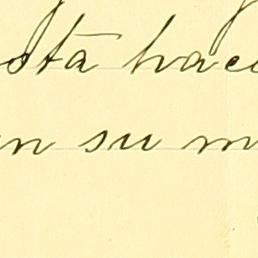 sta hac
n su m